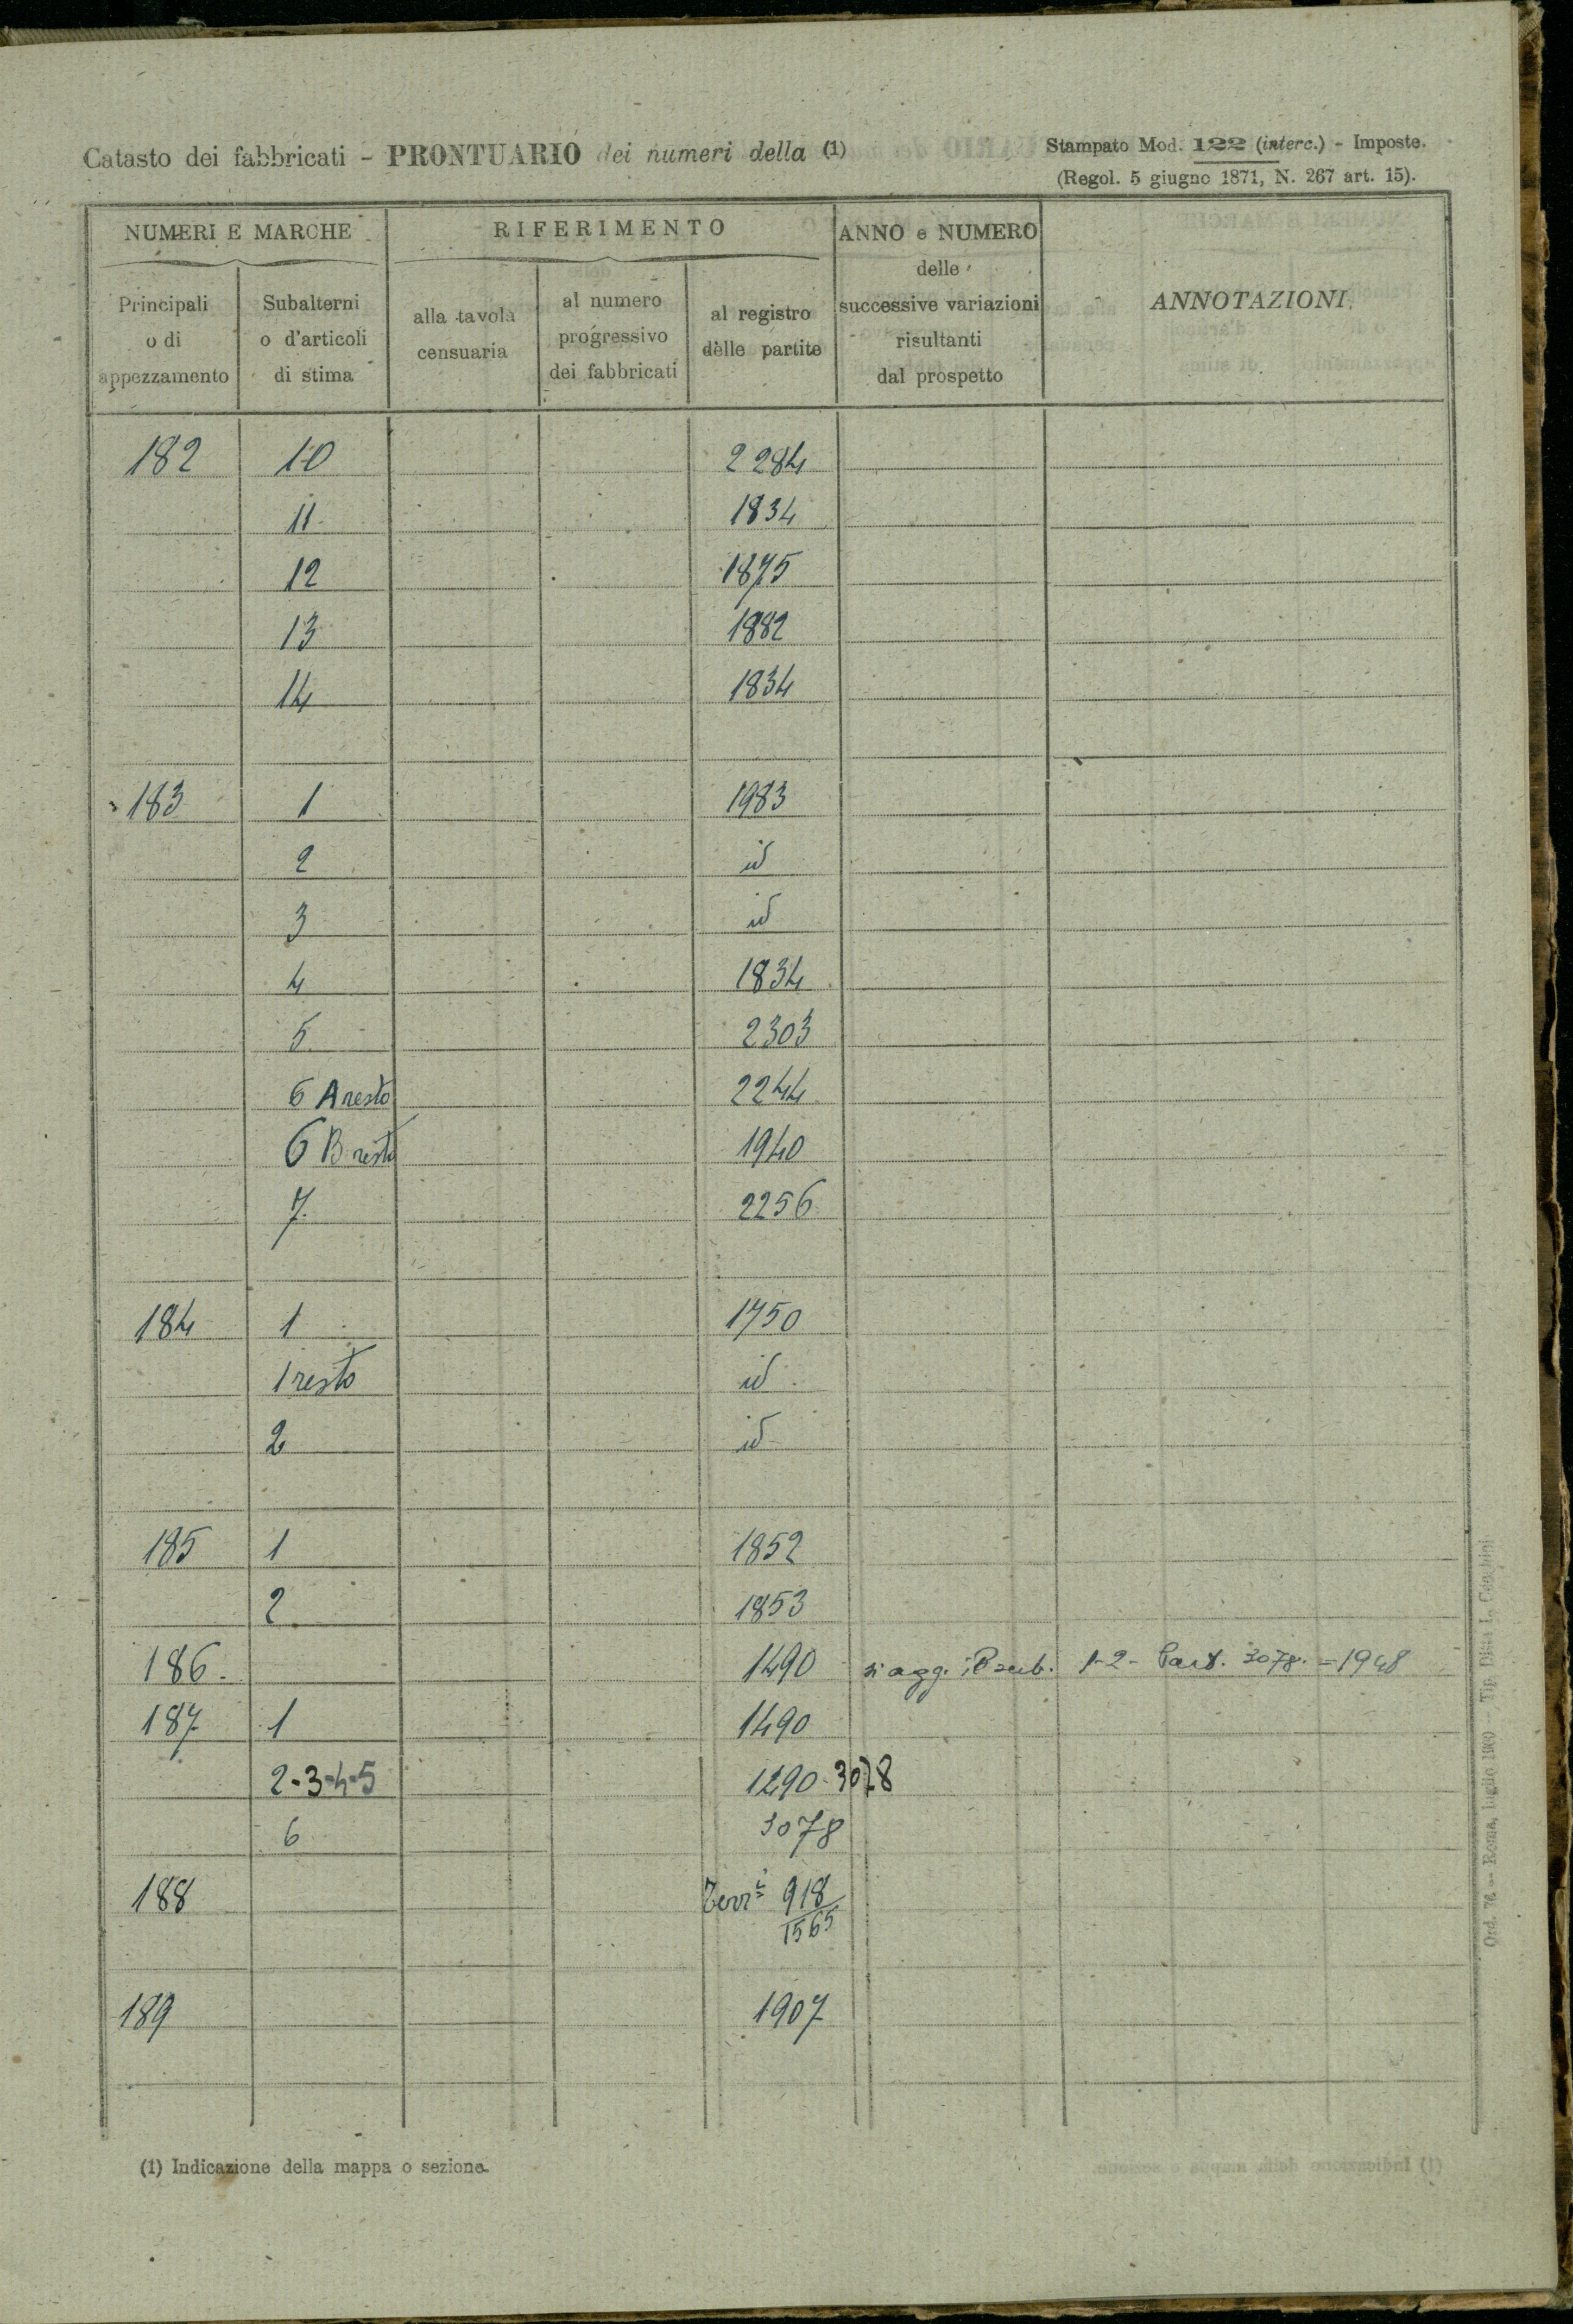 Catasto dei fabbricati - PRONTUARIO dei numeri della (1)
Stampato Mod. 122 (interc.) - Imposte.
(Regol. 5 giugno 1871, N. 267 art. 15).
NUMERI E MARCHE
RIFERIMENTO
ANNO e NUMERO
delle
successive variazioni
risultanti
dal prospetto
ANNOTAZIONI
Principali
o di
appezzamento
Subalterni
o d'articoli
di stima
alla tavola
censuaria
al numero
progressivo
dei fabbricati
al registro
delle partite
182 10 2284
11 1834
12 1875
13 1882
14 1834
183 1 1983
2 id
3 id
4 1834
5 2303
6 A resto 2244
6 B resto 1940
7 2256
184 1 1750
1 resto id
2 id
185 1 1852
2 1853
186. 1490 si agg. sub. 1-2- Part. 3078. = 1948
187 1 1490
2-3-4-5 3078
6 3078
188 918
1565
189 1907
(1) Indicazione della mappa o sezione.
Ord. 76 - Roma, luglio - Tip. Ditta L. Cecchini